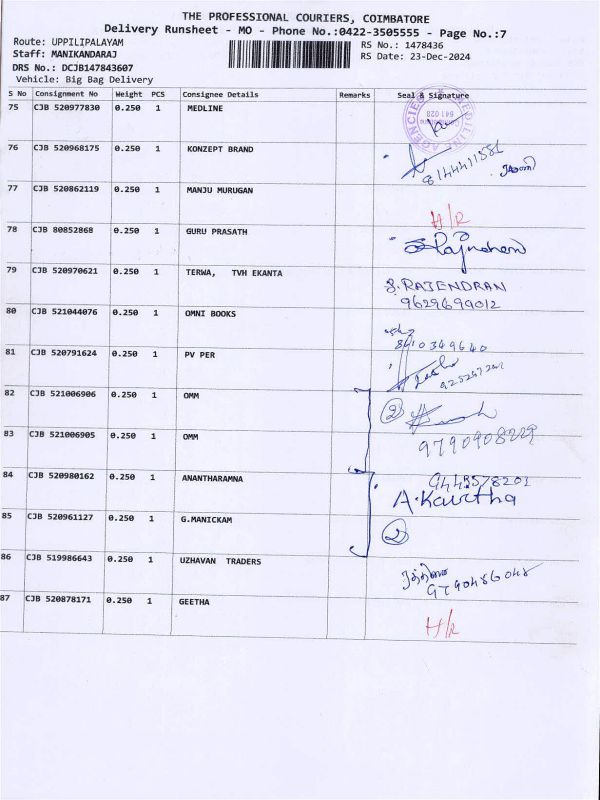 THE PROFESSIONAL COURIERS, COIMBATORE
Delivery Runsheet - MO - Phone No.:0422-3505555 - Page No.:7
Route: UPPILIPALAYAM
RS No.: 1478436
Staff: MANIKANDARAJ
RS Date: 23-Dec-2024
DRS No.: DCJB147843607
Vehicle: Big Bag Delivery
S No Consignment No Weight PCS Consignee Details Remarks Seal & Signature
75 CJB 520977830 0.250 1 MEDLINE
641 028
76 CJB 520968175 0.250 1 KONZEPT BRAND
8144411581
77 CJB 520862119 0.250 1 MANJU MURUGAN
H/R
78 CJB 80852868 0.250 1 GURU PRASATH
79 CJB 520970621 0.250 1 TERWA, TVH EKANTA
S.RAJENDRAN
9629699012
80 CJB 521044076 0.250 1 OMNI BOOKS
81 CJB 520791624 0.250 1 PV PER
82 CJB 521006906 0.250 1 OMM
2
83 CJB 521006905 0.250 1 OMM
84 CJB 520980162 0.250 1 ANANTHARAMNA
A.Kavitha
85 CJB 520961127 0.250 1 G.MANICKAM
2
86 CJB 519986643 0.250 1 UZHAVAN TRADERS
87 CJB 520878171 0.250 1 GEETHA
H/R